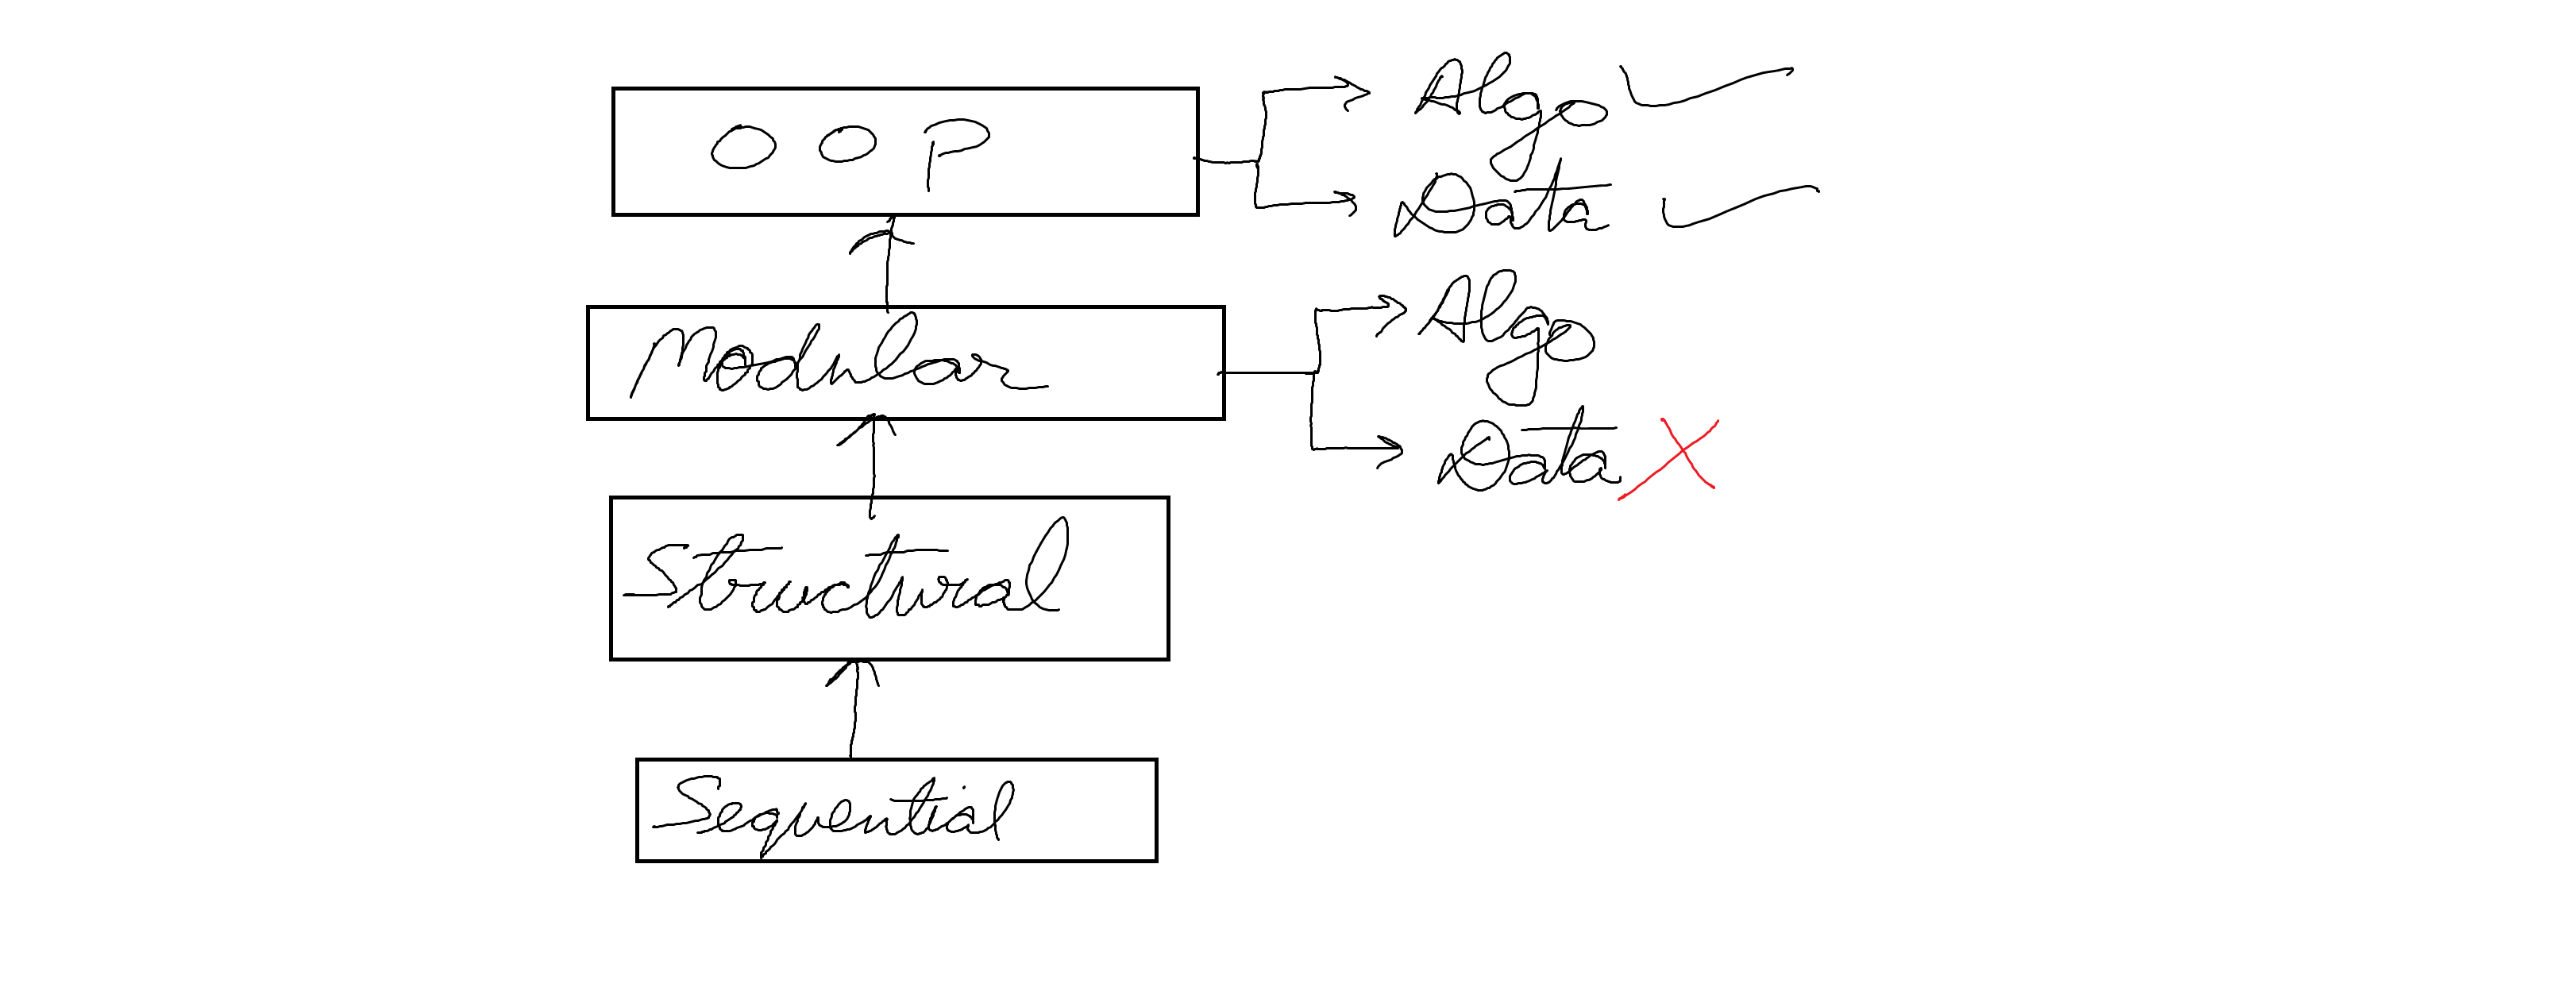 OOP
Algo
Data
Modular
Algo
Data
Structural
Sequential